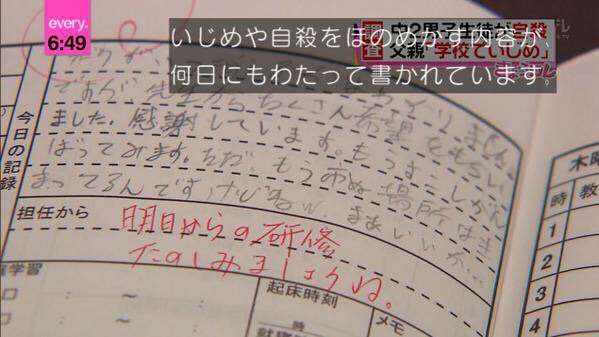 every.
6:49
中2男子生徒が自殺
父親"学校でいじめ"
いじめや自殺をほのめかす内容が、
何日にもわたって書かれています。
今日の記録
ですが、先生からたくさん希望をもらい
ました。感謝しています。もうすこしがん
ばってみます。ただ、もう市ぬ場所はき
まってるんですけどねw。まあいいか…
担任から
明日からの研修
たのしみましょうね。
学習
起床時刻
時
メモ
木曜
時 教
1
2
3
4